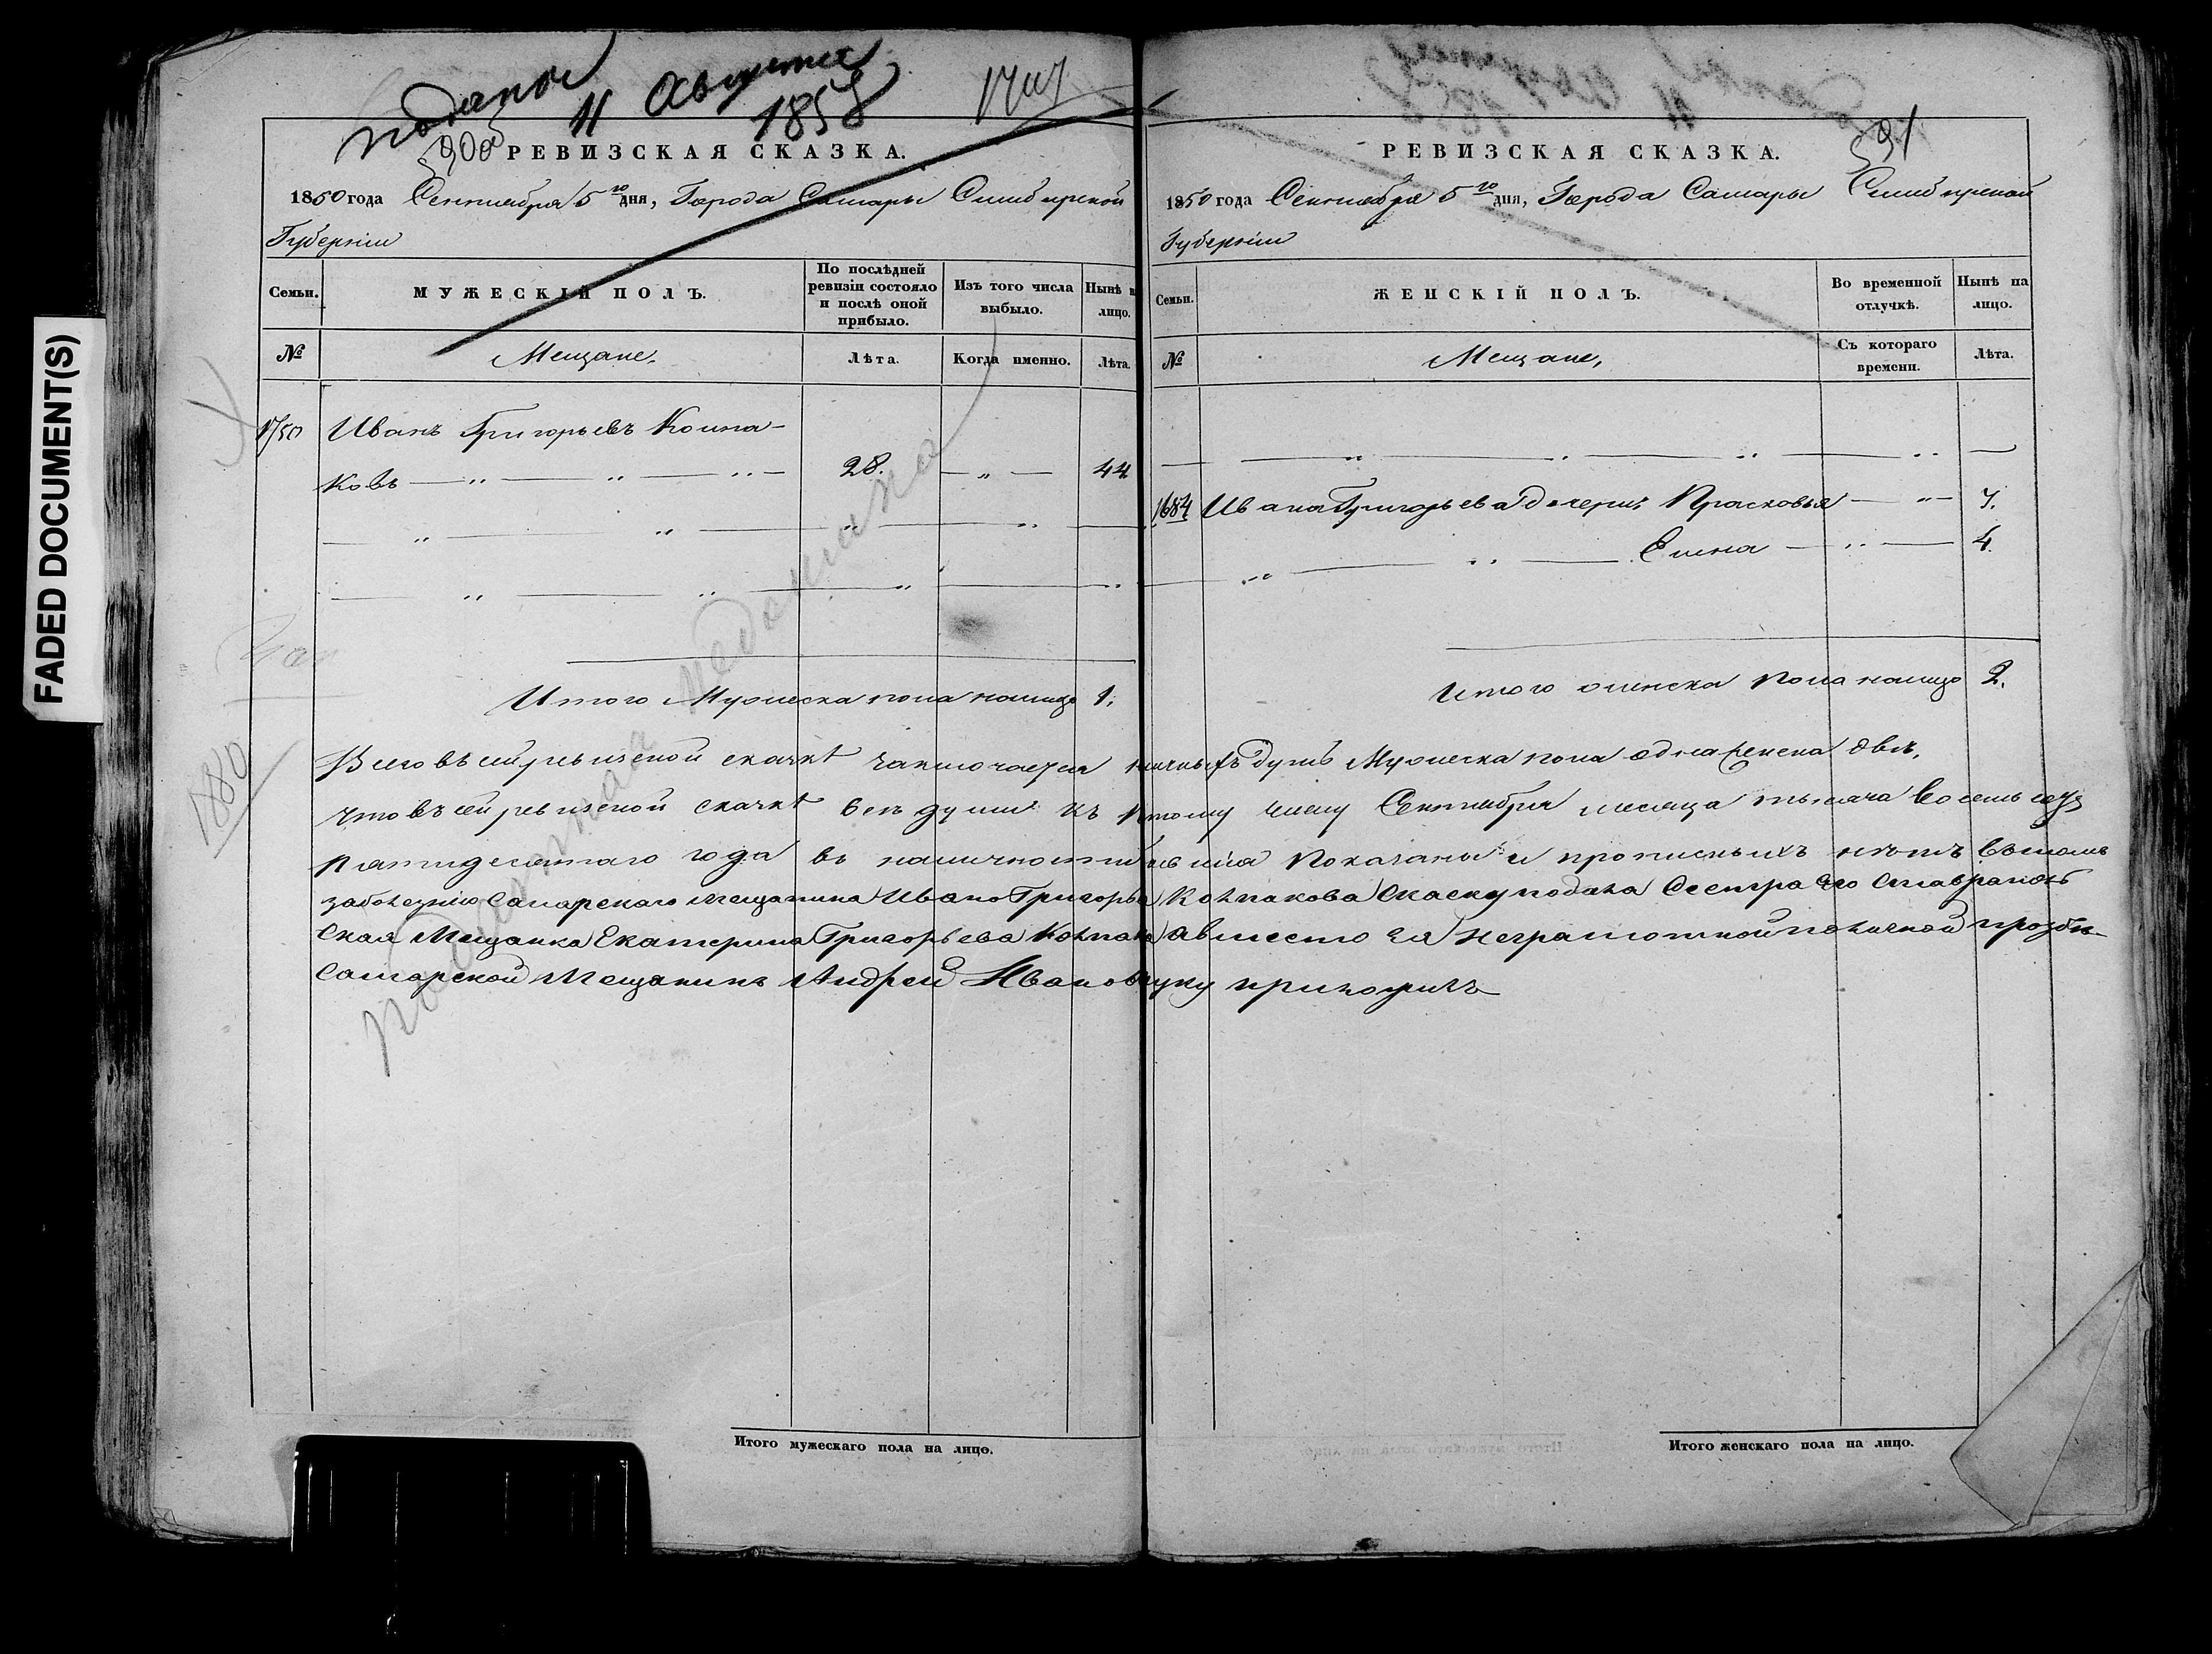 FADED DOCUMENT(S)
подано 11 Августа 1858
РЕВИЗСКАЯ СКАЗКА.
1850 года Сентября 5го дня, Города Самары Симбирской
Губернiи
Семьи.
МУЖЕСКIЙ ПОЛЪ.
По послѣдней ревизiи состояло и послѣ оной прибыло.
Изъ того числа выбыло.
Нынѣ на лицо.
№
Мещане.
Лѣта.
Когда именно.
Лѣта.
1750 Иванъ Григорьевъ Колпа-
ковъ — „ — „ — „ — 28. — „ — 44
Итого Мужеска пола налицо 1.
591
РЕВИЗСКАЯ СКАЗКА.
1850 года Сентября 5го дня, Города Самары Симбирской
Губернiи
Семьи.
ЖЕНСКIЙ ПОЛЪ.
Во временной отлучкѣ.
Нынѣ на лицо.
№
Мещане,
Съ котораго времени.
Лѣта.
1684 Ивана Григорьева дочери, Прасковья — „ — 7.
Елена — „ — 4.
Итого женска пола налицо 2.
Всего въ сей ревизской скаскѣ заключается личныхъ душъ Мужеска пола одна женска двѣ,
что въ сей ревизской скаскѣ всѣ души къ пятому числу Сентября месяца тысяча восемьсотъ
пятидесятаго года въ наличности бывшiя показаны и прописныхъ нѣтъ въ томъ
заболезнiю Самарскаго мещанина Ивана Григорьева Колпакова Скаску подала Сестра Его Ставраполь
ская Мещанка Екатерина Григорьева Колпакова авместо ея неграмотной по личной прозбѣ
Самарской Мещанинъ Андрей Ивановъ руку приложилъ
1880
Итого мужескаго пола на лицо.
Итого женскаго пола на лицо.